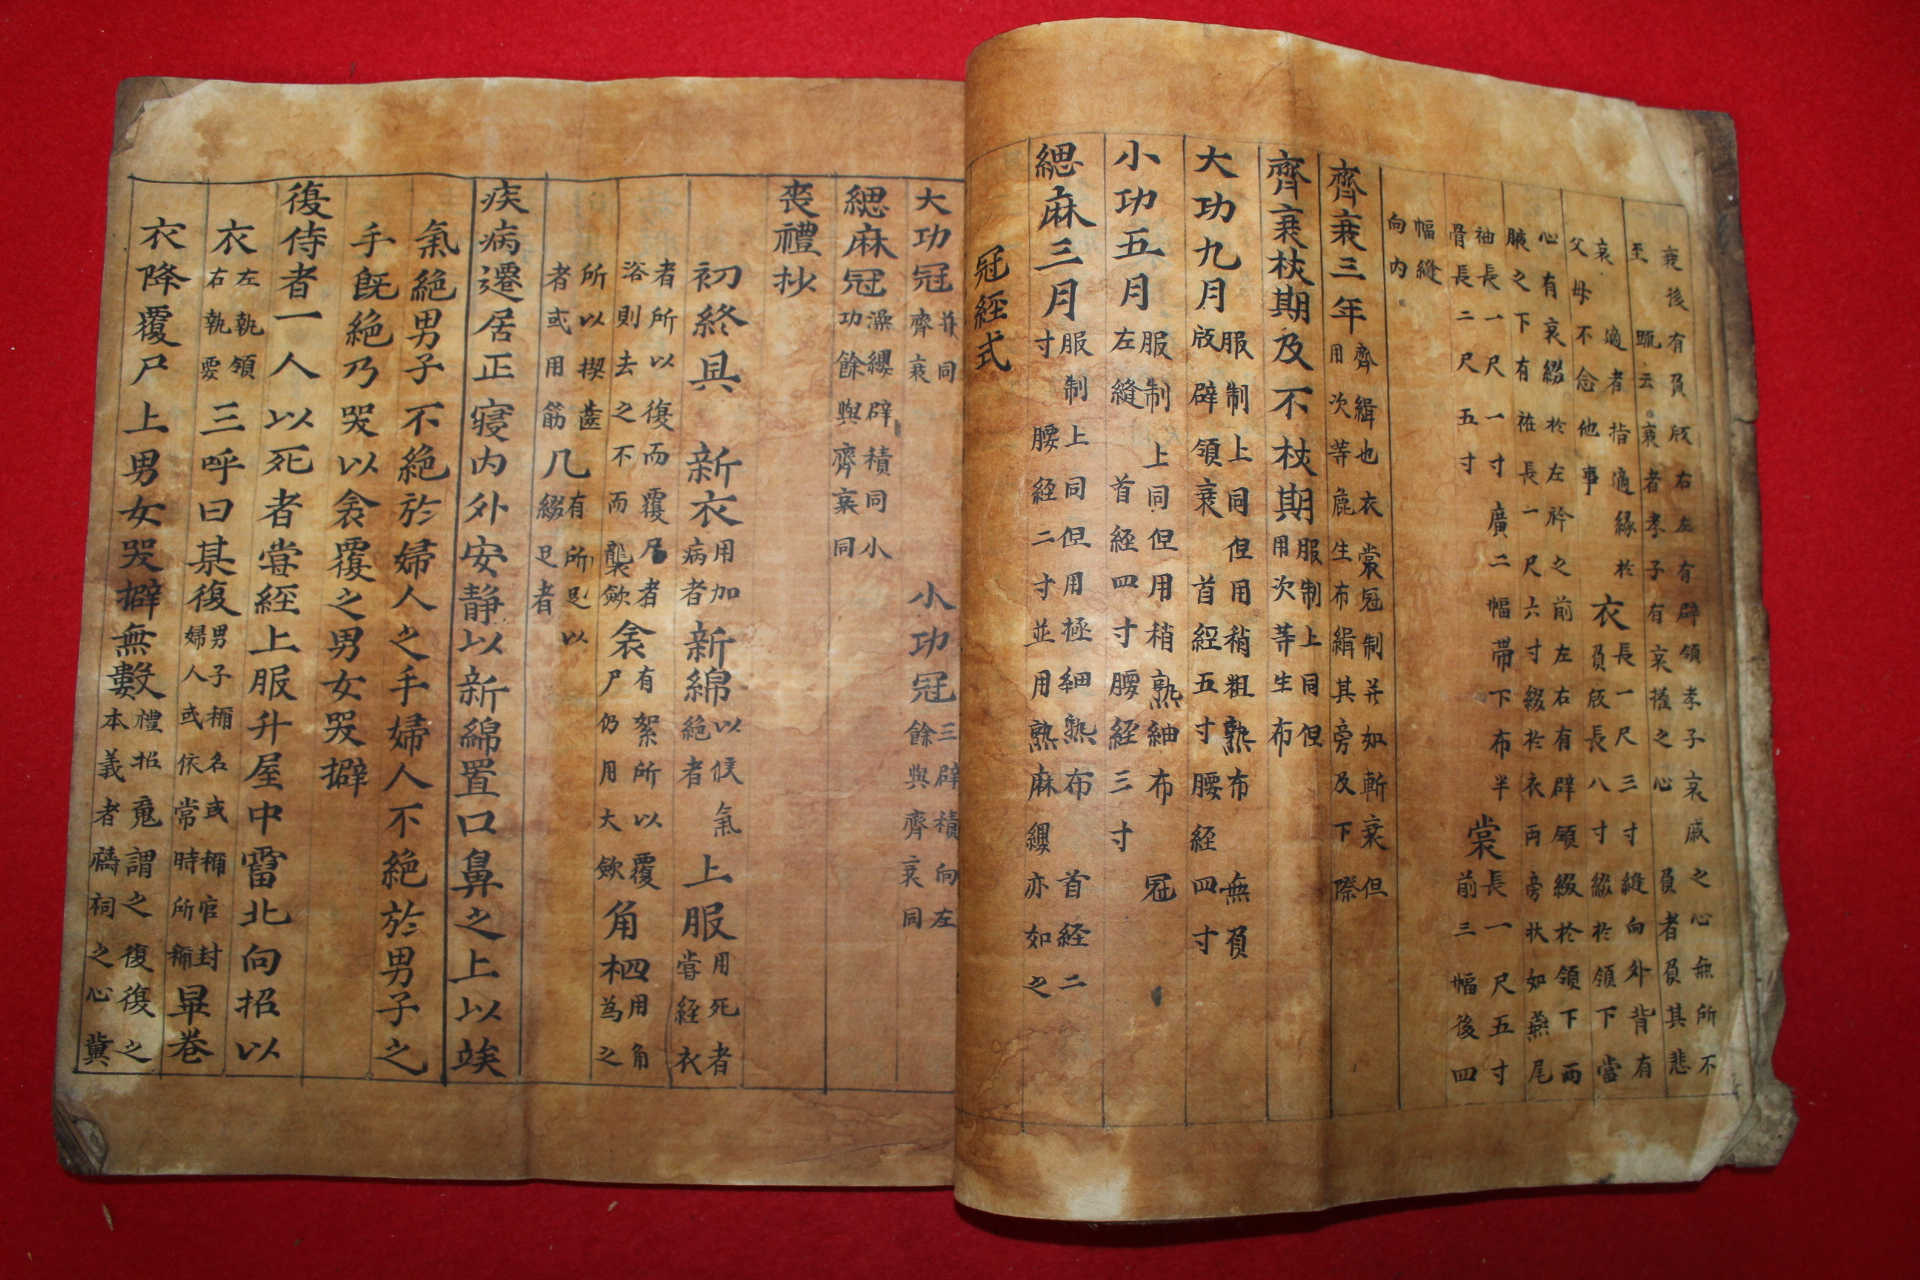 衰後有負版右左有辟領孝子哀戚之心無所不
至 疏云衰者孝子有哀摧之心 負者負其悲
哀 適者指適緣於 衣長一尺三寸縫向外背有
父母不念他事 負版長八寸綴於領下當
心有衰綴於左衿之前左右有辟領綴於領下兩
腋之下有衽長一尺六寸綴於衣兩旁狀如燕尾
袖長一尺一寸廣二幅帶下布半 裳長一尺五寸
骨長二尺五寸 前三幅後四
幅縫
向內
齊衰三年齊緝也衣裳冠制並如斬衰但
用次等麁生布緝其旁及下際
齊衰杖期及不杖期服制上同但
用次等生布
大功九月服制上同但用稍粗熟布 無負
版辟領衰 首絰五寸腰絰四寸
小功五月服制上同但用稍熟紬布 冠
左縫 首絰四寸腰絰三寸
緦麻三月服制上同但用極細熟布 首絰二
寸腰絰二寸並用熟麻纓亦如之
冠絰式
大功冠並同
齊衰 小功冠三辟積向左
餘與齊衰同
緦麻冠澡纓辟積同小
功餘與齊衰同
喪禮抄
初終具 新衣用加
病者新綿以候氣
絕者 上服用死者
嘗經衣
者所以復而覆尸者
浴則去之不而襲歛 衾有絮所以覆
尸仍用大歛 角柶用角
為之
所以楔齒
者或用筋 几有所以
綴足者
疾病遷居正寢內外安静以新綿置口鼻之上以竢
氣絕男子不絕於婦人之手婦人不絕於男子之
手旣絕乃哭以衾覆之男女哭擗
復侍者一人以死者嘗經上服升屋中霤北向招以
衣左執領
右執要三呼曰某復男子稱名或稱官封
婦人或依常時所稱畢巻
衣降覆尸上男女哭擗無數禮招䰟謂之復復之
本義者禱祠之心冀